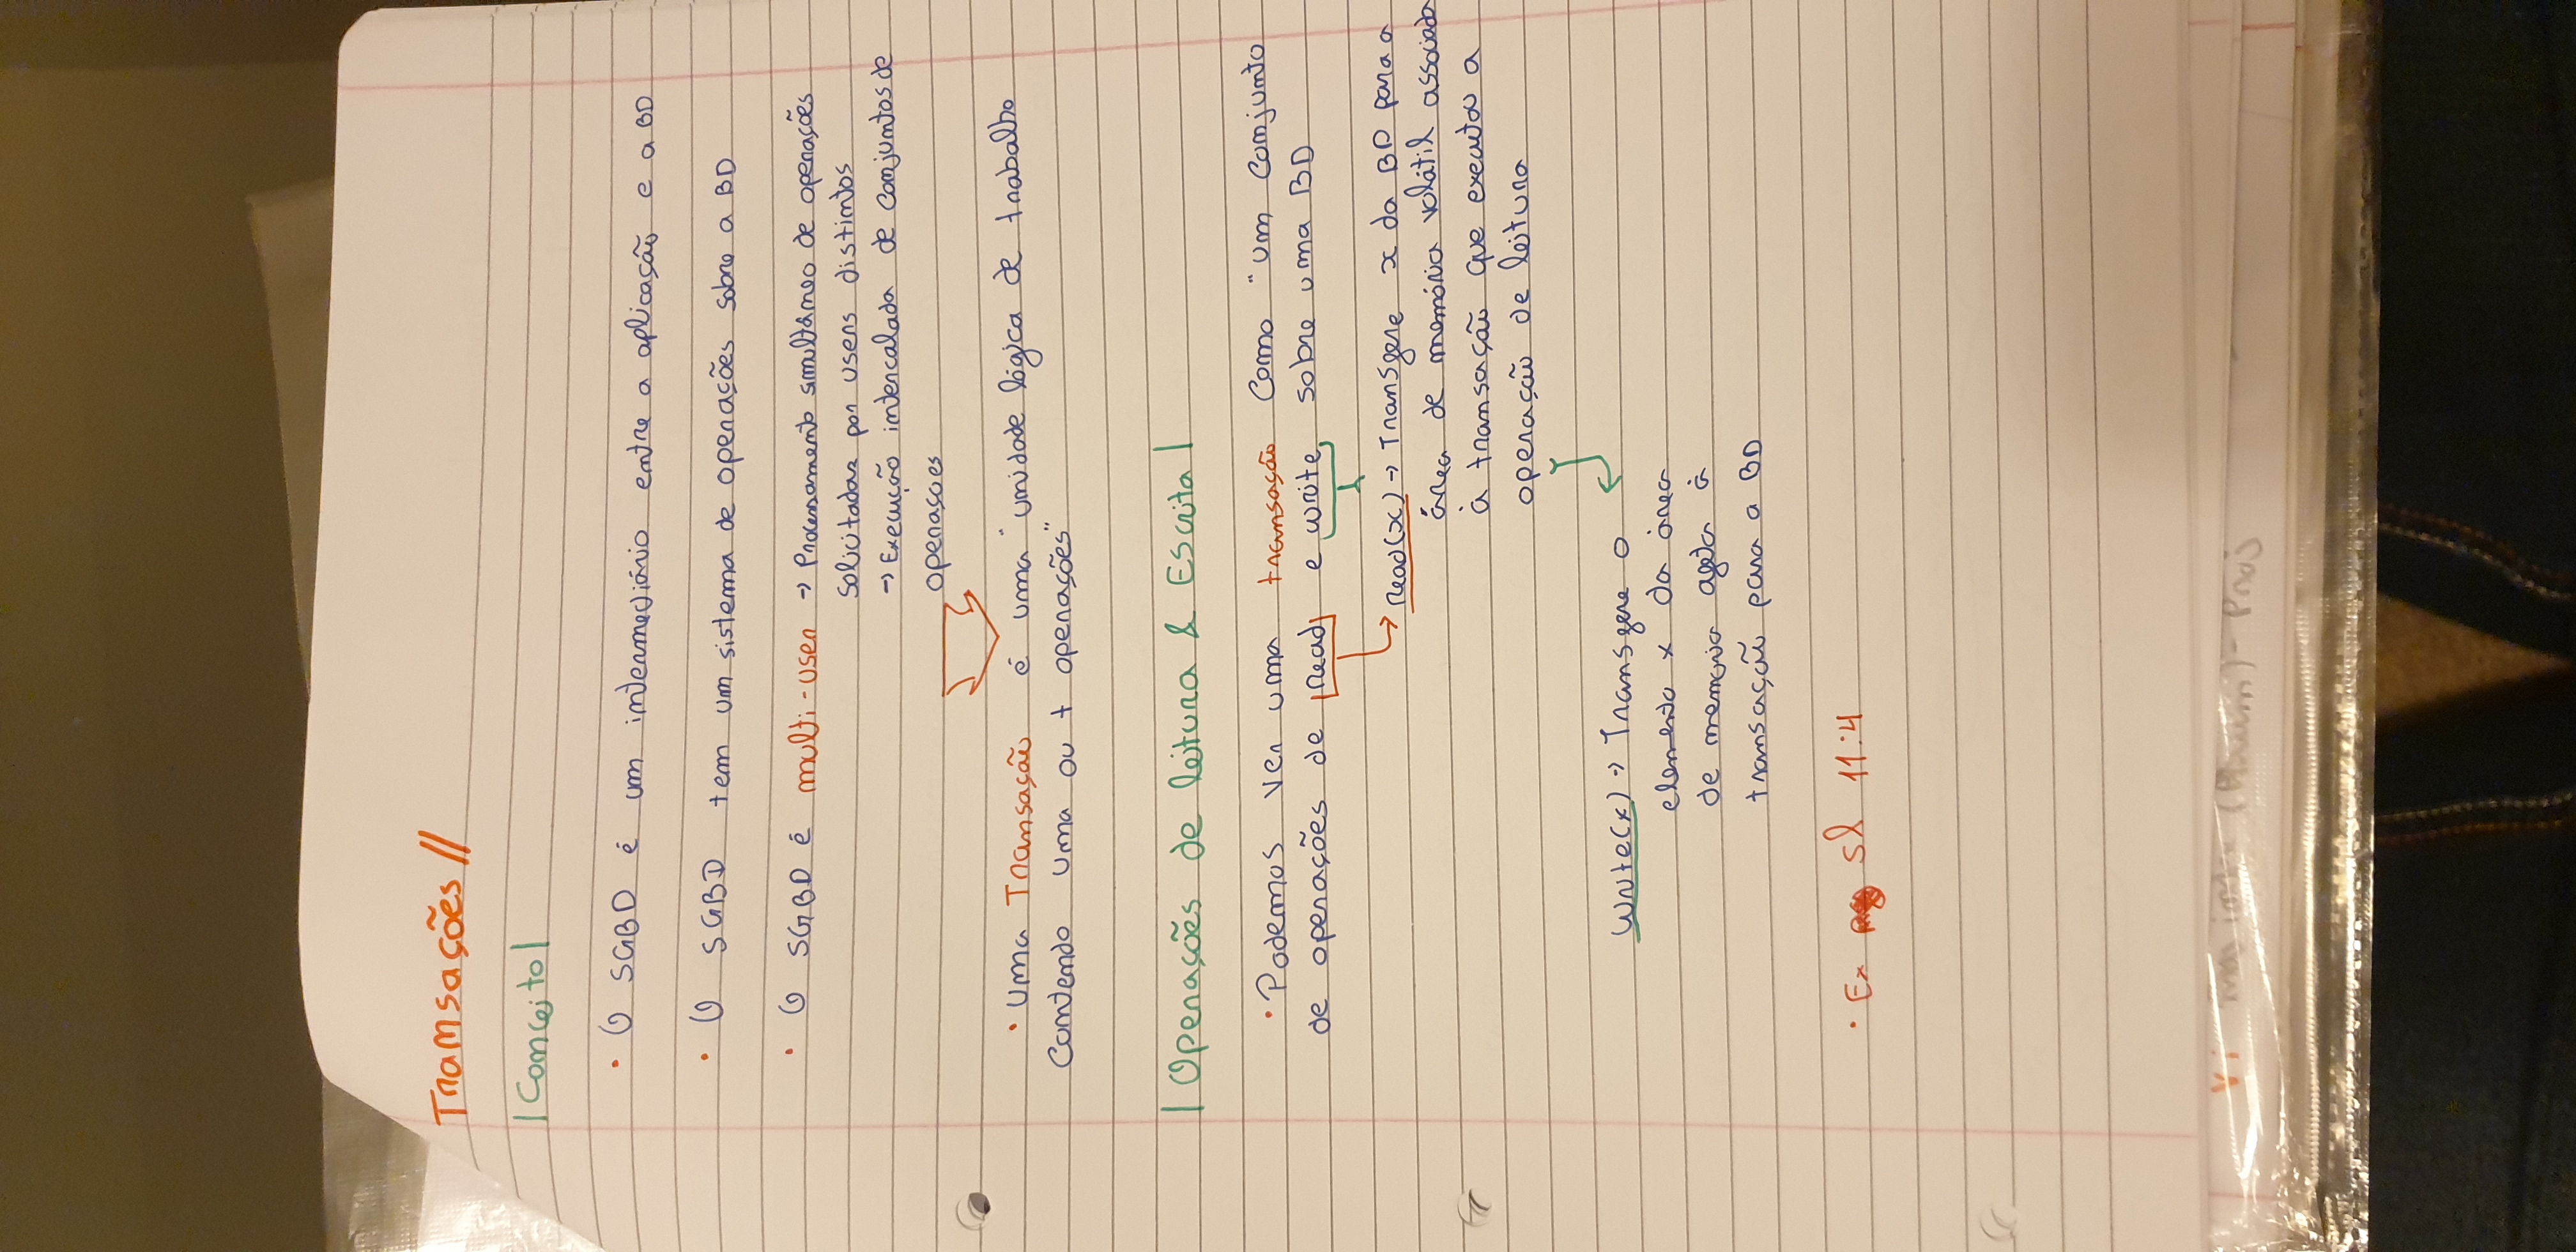 Transações //
| Conceito |
• O SGBD é um intermediário entre a aplicação e a BD
• O SGBD tem um sistema de operações sobre a BD
• O SGBD é multi-user → Processamento simultâneo de operações
solicitadas por users distintos
→ Execução intercalada de conjuntos de
operações
• Uma Transação é uma "unidade lógica de trabalho
contendo uma ou + operações"
| Operações de leitura & Escrita |
• Podemos ver uma transação como "um conjunto
de operações de |read| e write, sobre uma BD
read(x) → Transfere x da BD para a
área de memória volátil associada
à transação que executou a
operação de leitura
write(x) → Transfere o
elemento x da área
de memoria afeta à
transação para a BD
• Ex sl 11:4
- Proj